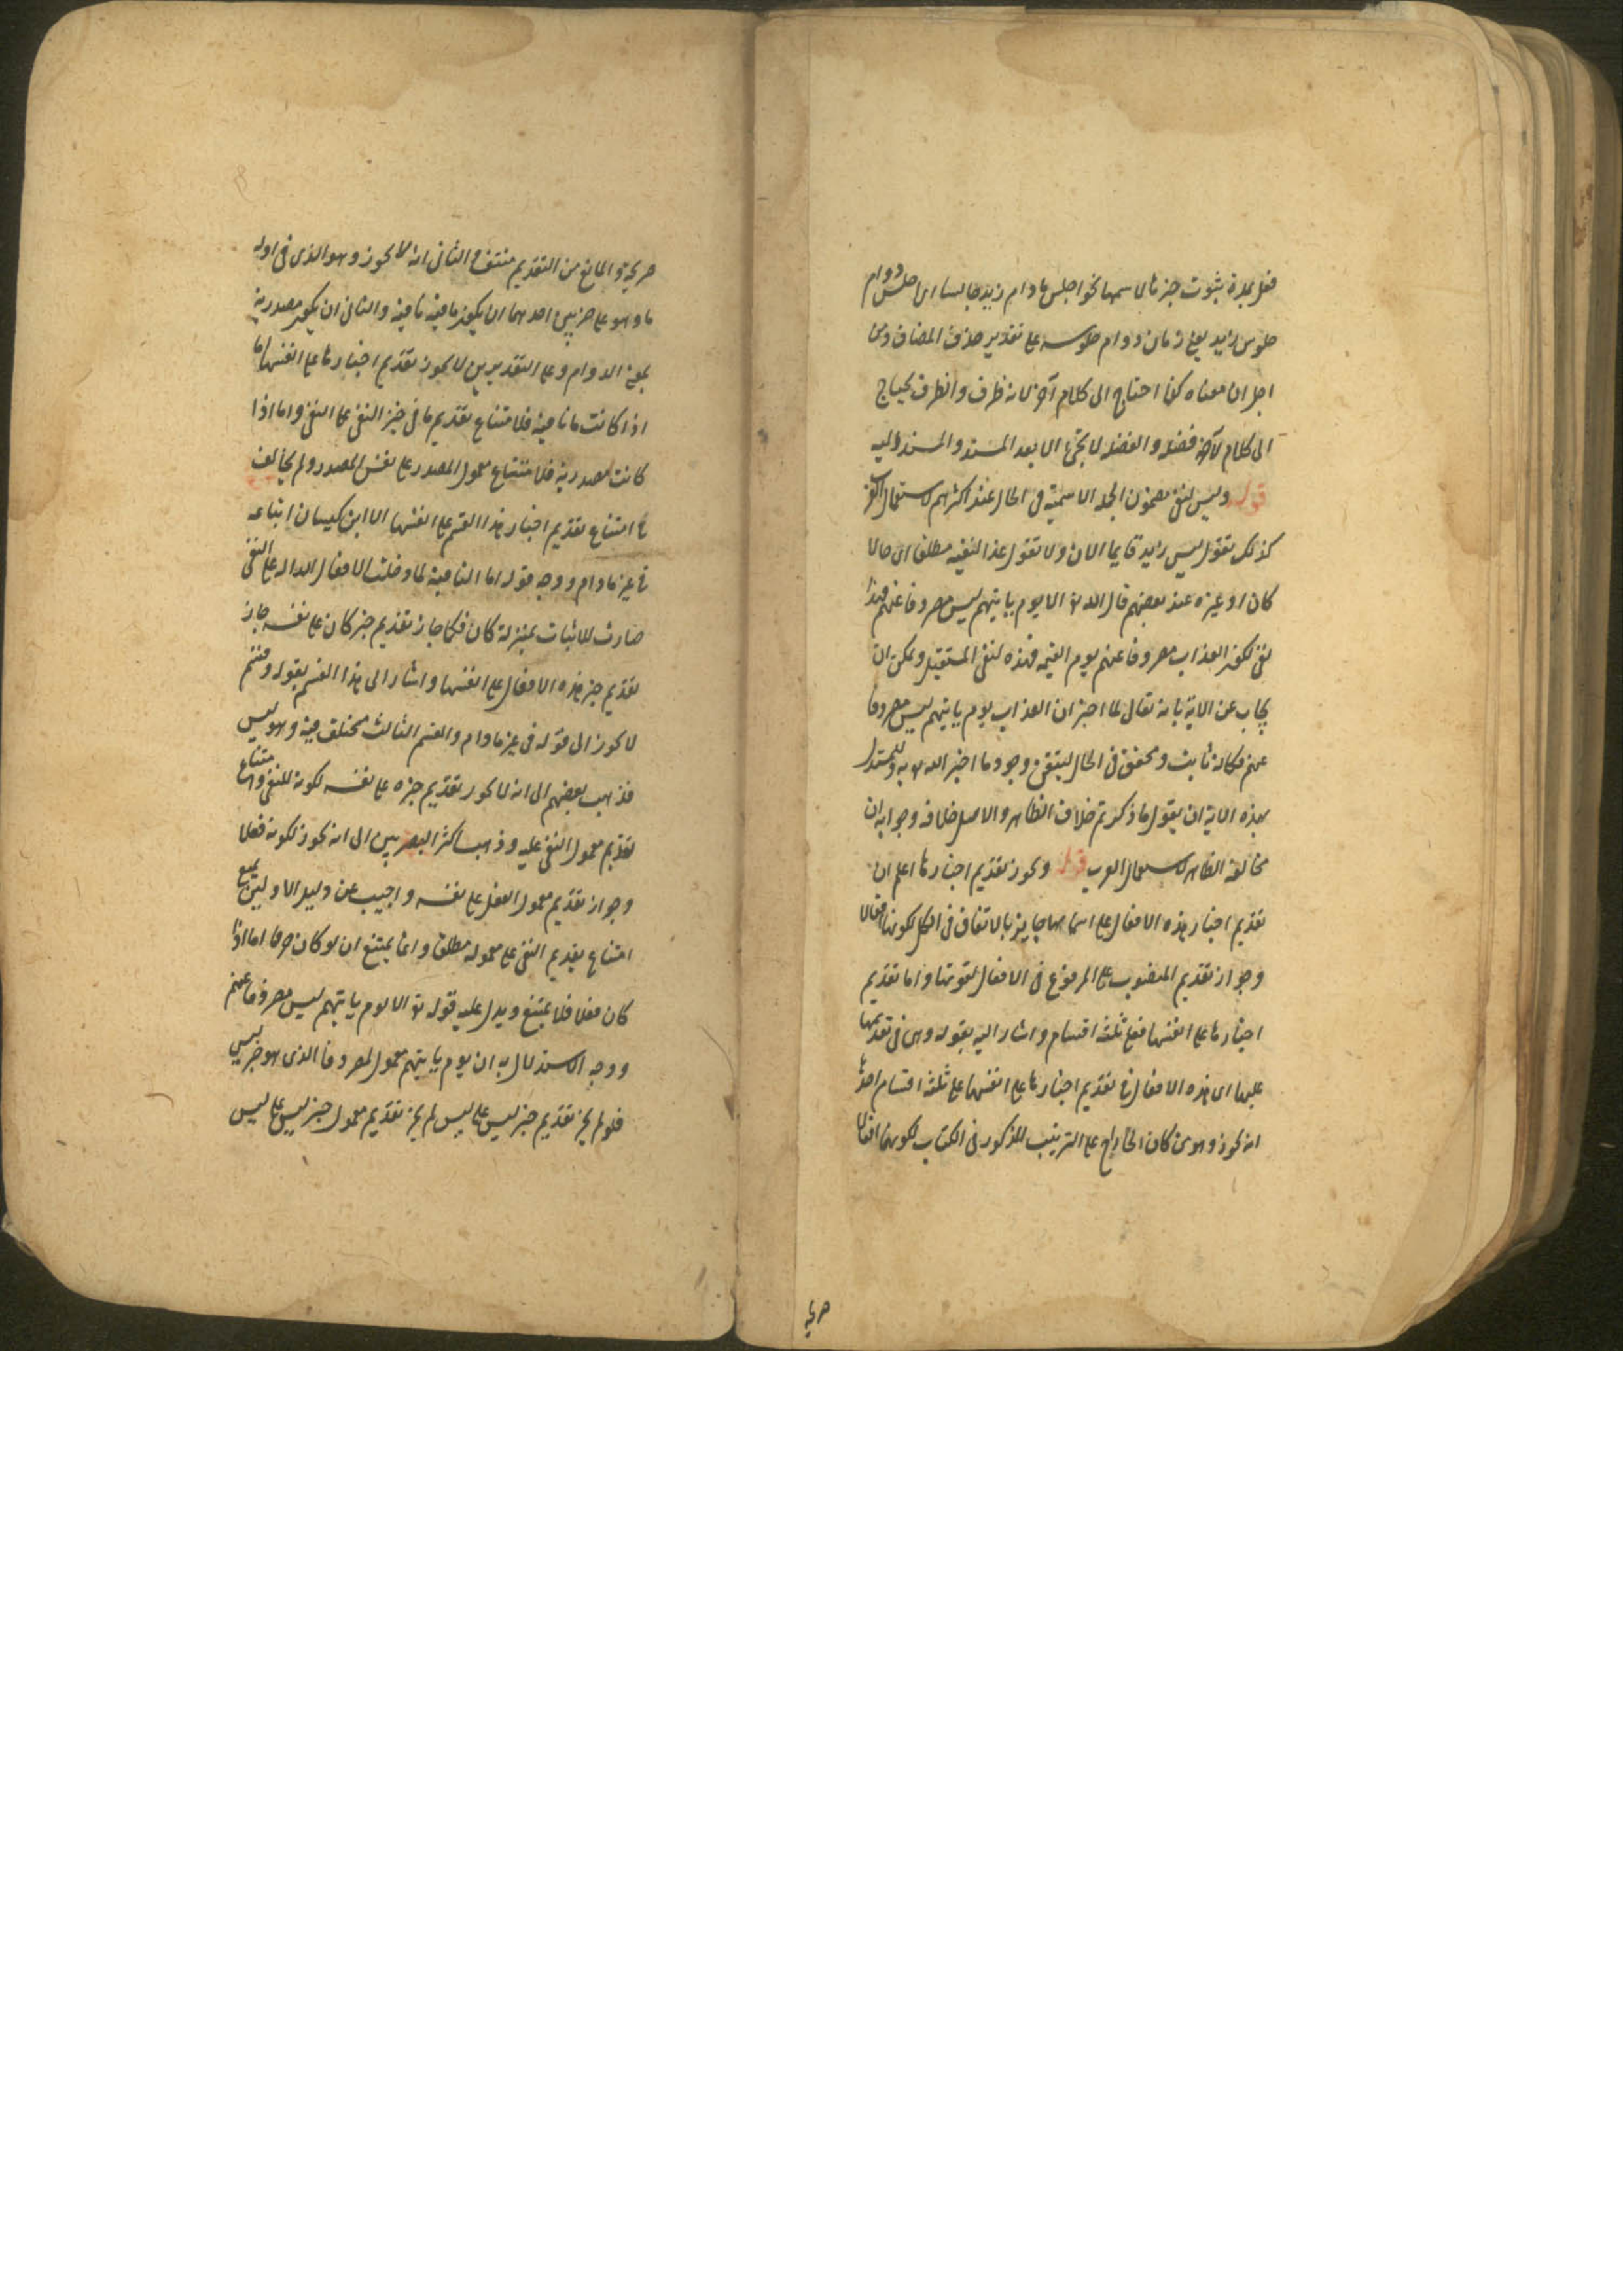 فعل بمدة ثبوت خبرها لاسمها نحو اجلس مادام زيد جالسا اى اجلس دوام
جلوس زيد يعنى زمان دوام جلوسه على تقدير حذف المضاف ومن
اجل ان معناه كذا احتاج الى كلام آخر لانه ظرف والظرف يحتاج
الى كلام لانه فضلة والفضلة لا تجئ الا بعد المسند والمسند اليه
قوله وليس لنفى مضمون الجملة الاسمية فى الحال عند اكثرهم لاستعمال العرب
كذلك تقول ليس زيد قايما الان ولا تقول غدا لنفيه مطلقا اى حالا
كان او غيره عند بعضهم قال الله تع الا يوم ياتيهم ليس مصروفا عنهم فهذا
نفى لكون العذاب مصروفا عنهم يوم القيمة فهذه لنفى المستقبل ويمكن ان
يجاب عن الاية بانه تعالى لما اخبر ان العذاب يوم ياتيهم ليس مصروفا
عنهم فكانه ثابت ومحقق فى الحال ليتقن وجود ما اخبر الله تع به وللمستدل
بهذه الاية ان يقول ما ذكرتم خلاف الظاهر والاصل خلافه وجوابه ان
مخالفة الظاهر لاستعمال العرب قوله ويجوز تقديم اخبارها اعلم ان
تقديم اخبار هذه الافعال على اسمائها جايز بالاتفاق فى الكل لكونها افعالا
وجواز تقديم المنصوب على المرفوع فى الافعال لقوتها واما تقديم
اخبارها على انفسها فعلى ثلثة اقسام واشار اليه بقوله وهى فى تقديمها
عليها اى هذه الافعال فى تقديم اخبارها على انفسها على ثلثة اقسام احدها
انه يجوز وهو من كان الى راح على الترتيب المذكور فى الكتاب لكونها افعالا
صريحة
صريحة والمانع من التقديم منتف والثانى انه لا يجوز وهو الذى فى اوله
ما وهو على ضربين احدهما ان يكون ما فيه نافية والثانى ان يكون مصدرية
بمعنى الدوام وعلى التقديرين لا يجوز تقديم اخبارها على انفسها اما
اذا كانت ما نافية فلامتناع تقديم ما فى حيز النفى على النفى واما اذا
كانت مصدرية فلامتناع معمول المصدر على نفس المصدر ولم يخالف
فى امتناع تقديم اخبار هذا القسم على انفسها الا ابن كيسان اتباعه
فى غير مادام ووجه قوله اما النافية لما دخلت الافعال الدالة على النفى
صارت للاثبات بمنزلة كان فكما جاز تقديم خبر كان على نفسه جاز
تقديم خبر هذه الافعال على انفسها واشار الى هذا القسم بقوله وقسم
لا يجوز الى قوله فى غير مادام والقسم الثالث مختلف فيه وهو ليس
فذهب بعضهم الى انه لا يجوز تقديم خبره على نفسه لكونه للنفى وامتناع
تقديم معمول النفى عليه وذهب اكثر البصريين الى انه يجوز لكونه فعلا
وجواز تقديم معمول الفعل على نفسه واجيب عن دليل الاولين بمنع
امتناع تقديم النفى على معموله مطلقا وانما يمتنع ان لو كان حرفا اما اذا
كان فعلا فلا يمتنع ويدل عليه قوله تع الا يوم ياتيهم ليس مصروفا عنهم
ووجه الاستدلال به ان يوم ياتيهم معمول لمصروفا الذى هو خبر ليس
فلو لم يجز تقديم خبر ليس على ليس لم يجز تقديم معمول خبر ليس على ليس